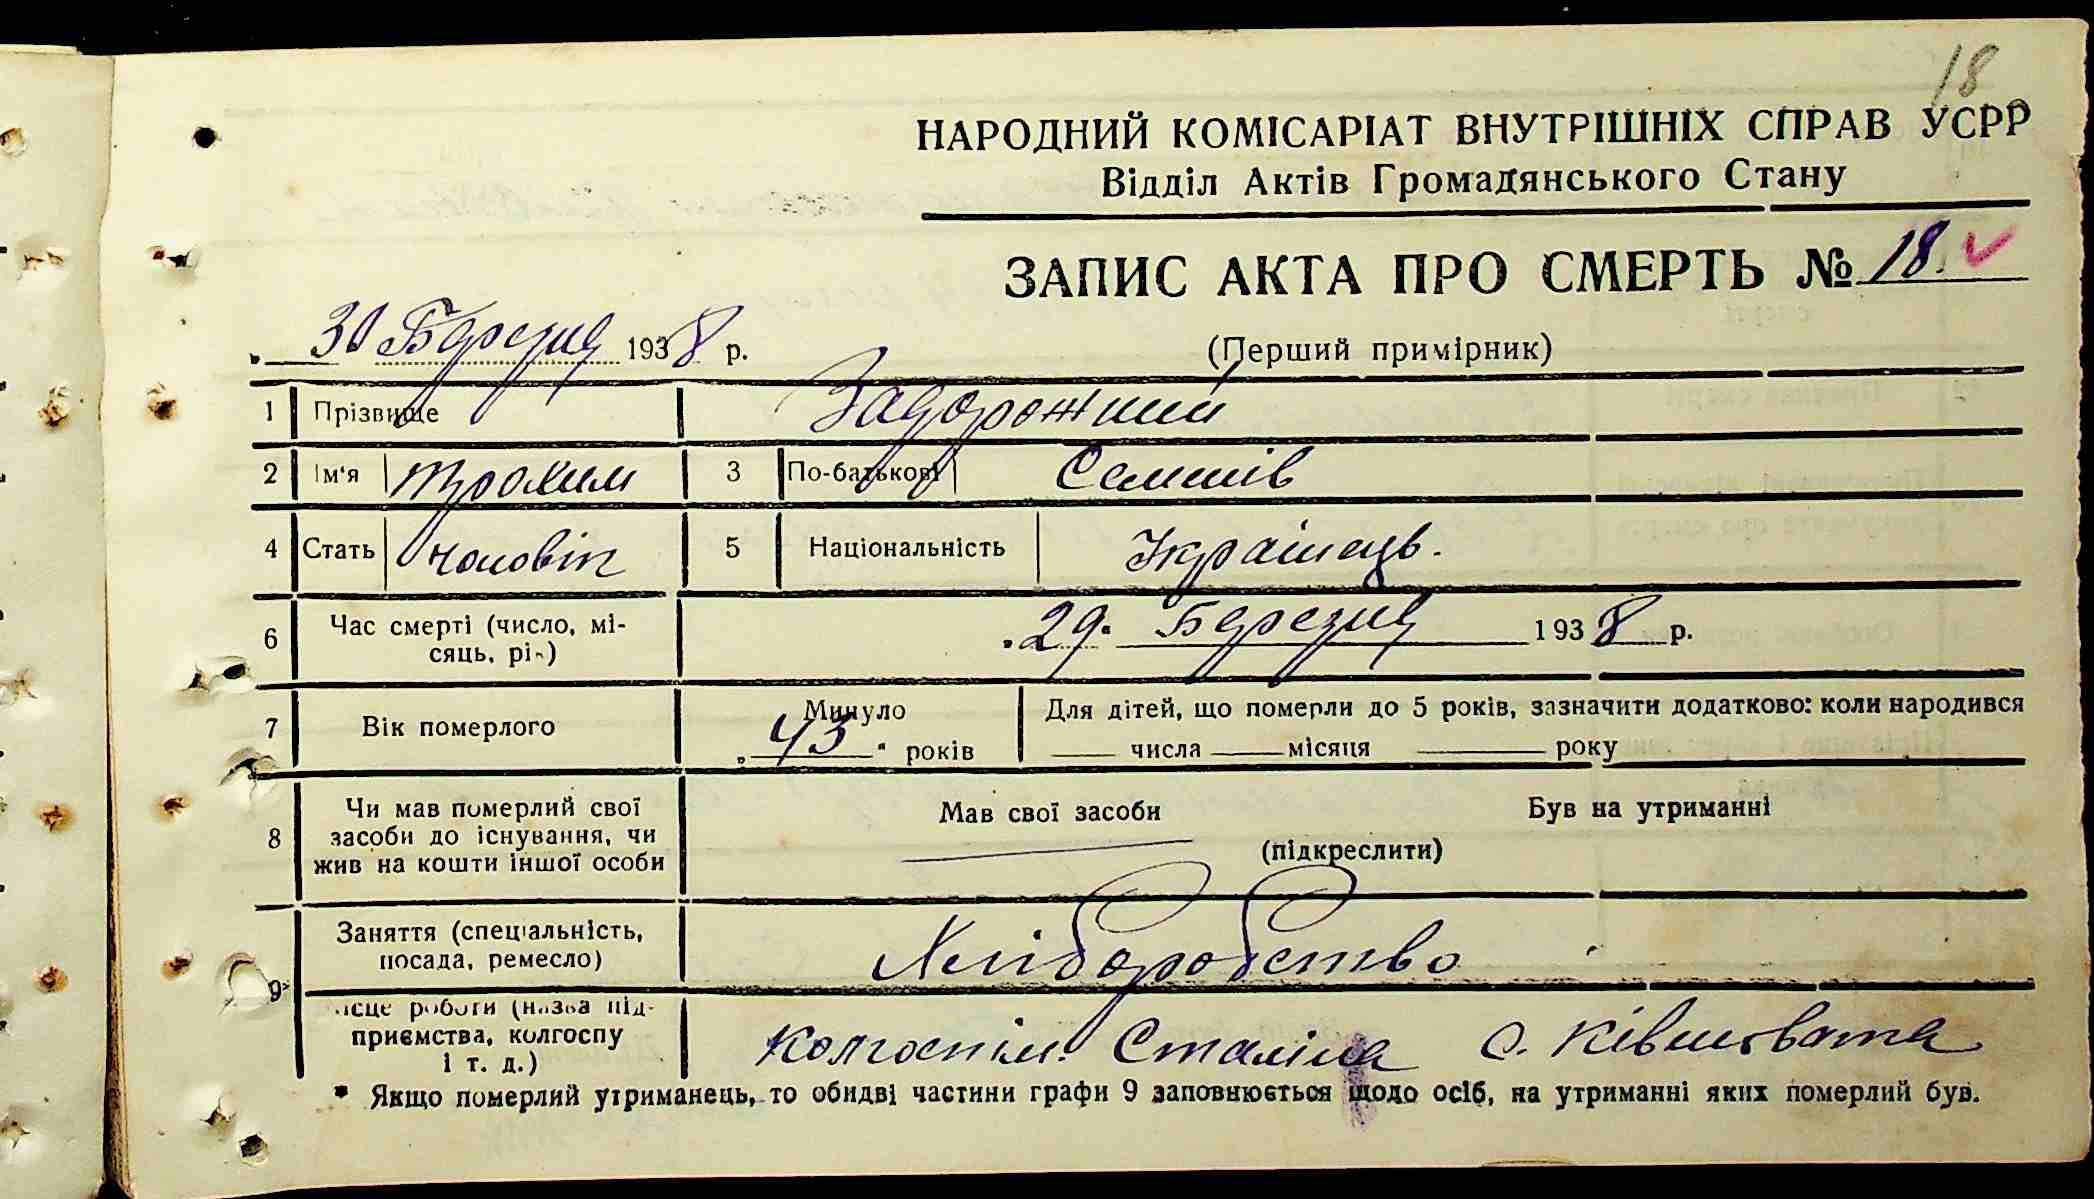 18
НАРОДНИЙ КОМІСАРІАТ ВНУТРІШНІХ СПРАВ УСРР
Відділ Актів Громадянського Стану
ЗАПИС АКТА ПРО СМЕРТЬ № 18.
30 Березня 1938 р.
(Перший примірник)
1 Прізвище Задорожний
2 Ім'я Трохим 3 По-батькові Семенів
4 Стать чоловік 5 Національність Українець.
6 Час смерті (число, мі-
сяць, рік) 29 Березня 1938 р.
7 Вік померлого Минуло 43 років Для дітей, що померли до 5 років, зазначити додатково: коли народився
числа місяця року
8 Чи мав померлий свої
засоби до існування, чи
жив на кошти іншої особи
Мав свої засоби Був на утриманні
(підкреслити)
9* Заняття (спеціальність,
посада, ремесло) Хліборобство
місце роботи (назва під-
приємства, колгоспу
і т. д.) Колгосп ім. Сталіна с. Ківшовата
* Якщо померлий утриманець, то обидві частини графи 9 заповнюється щодо осіб, на утриманні яких померлий був.